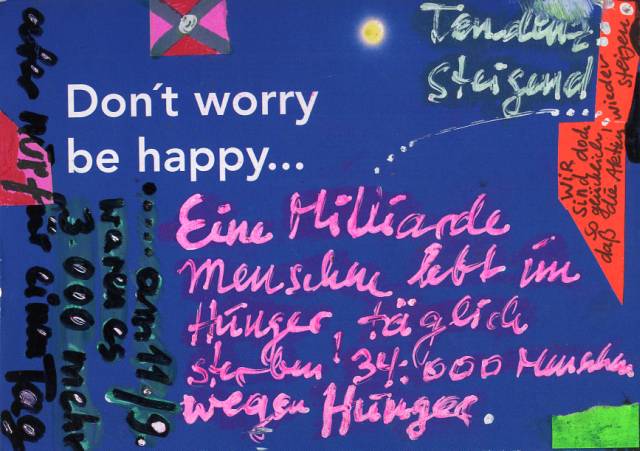 Don't worry
be happy...
Tendenz
steigend
...
Wir
sind doch
so glücklich
daß die Aktien wieder
steigen
Eine Milliarde
Menschen lebt im
Hunger, täglich
sterben! 34.000 Menschen
wegen Hunger.
..... am 11/9.
waren es
3.000 mehr
aber nur für einen Tag